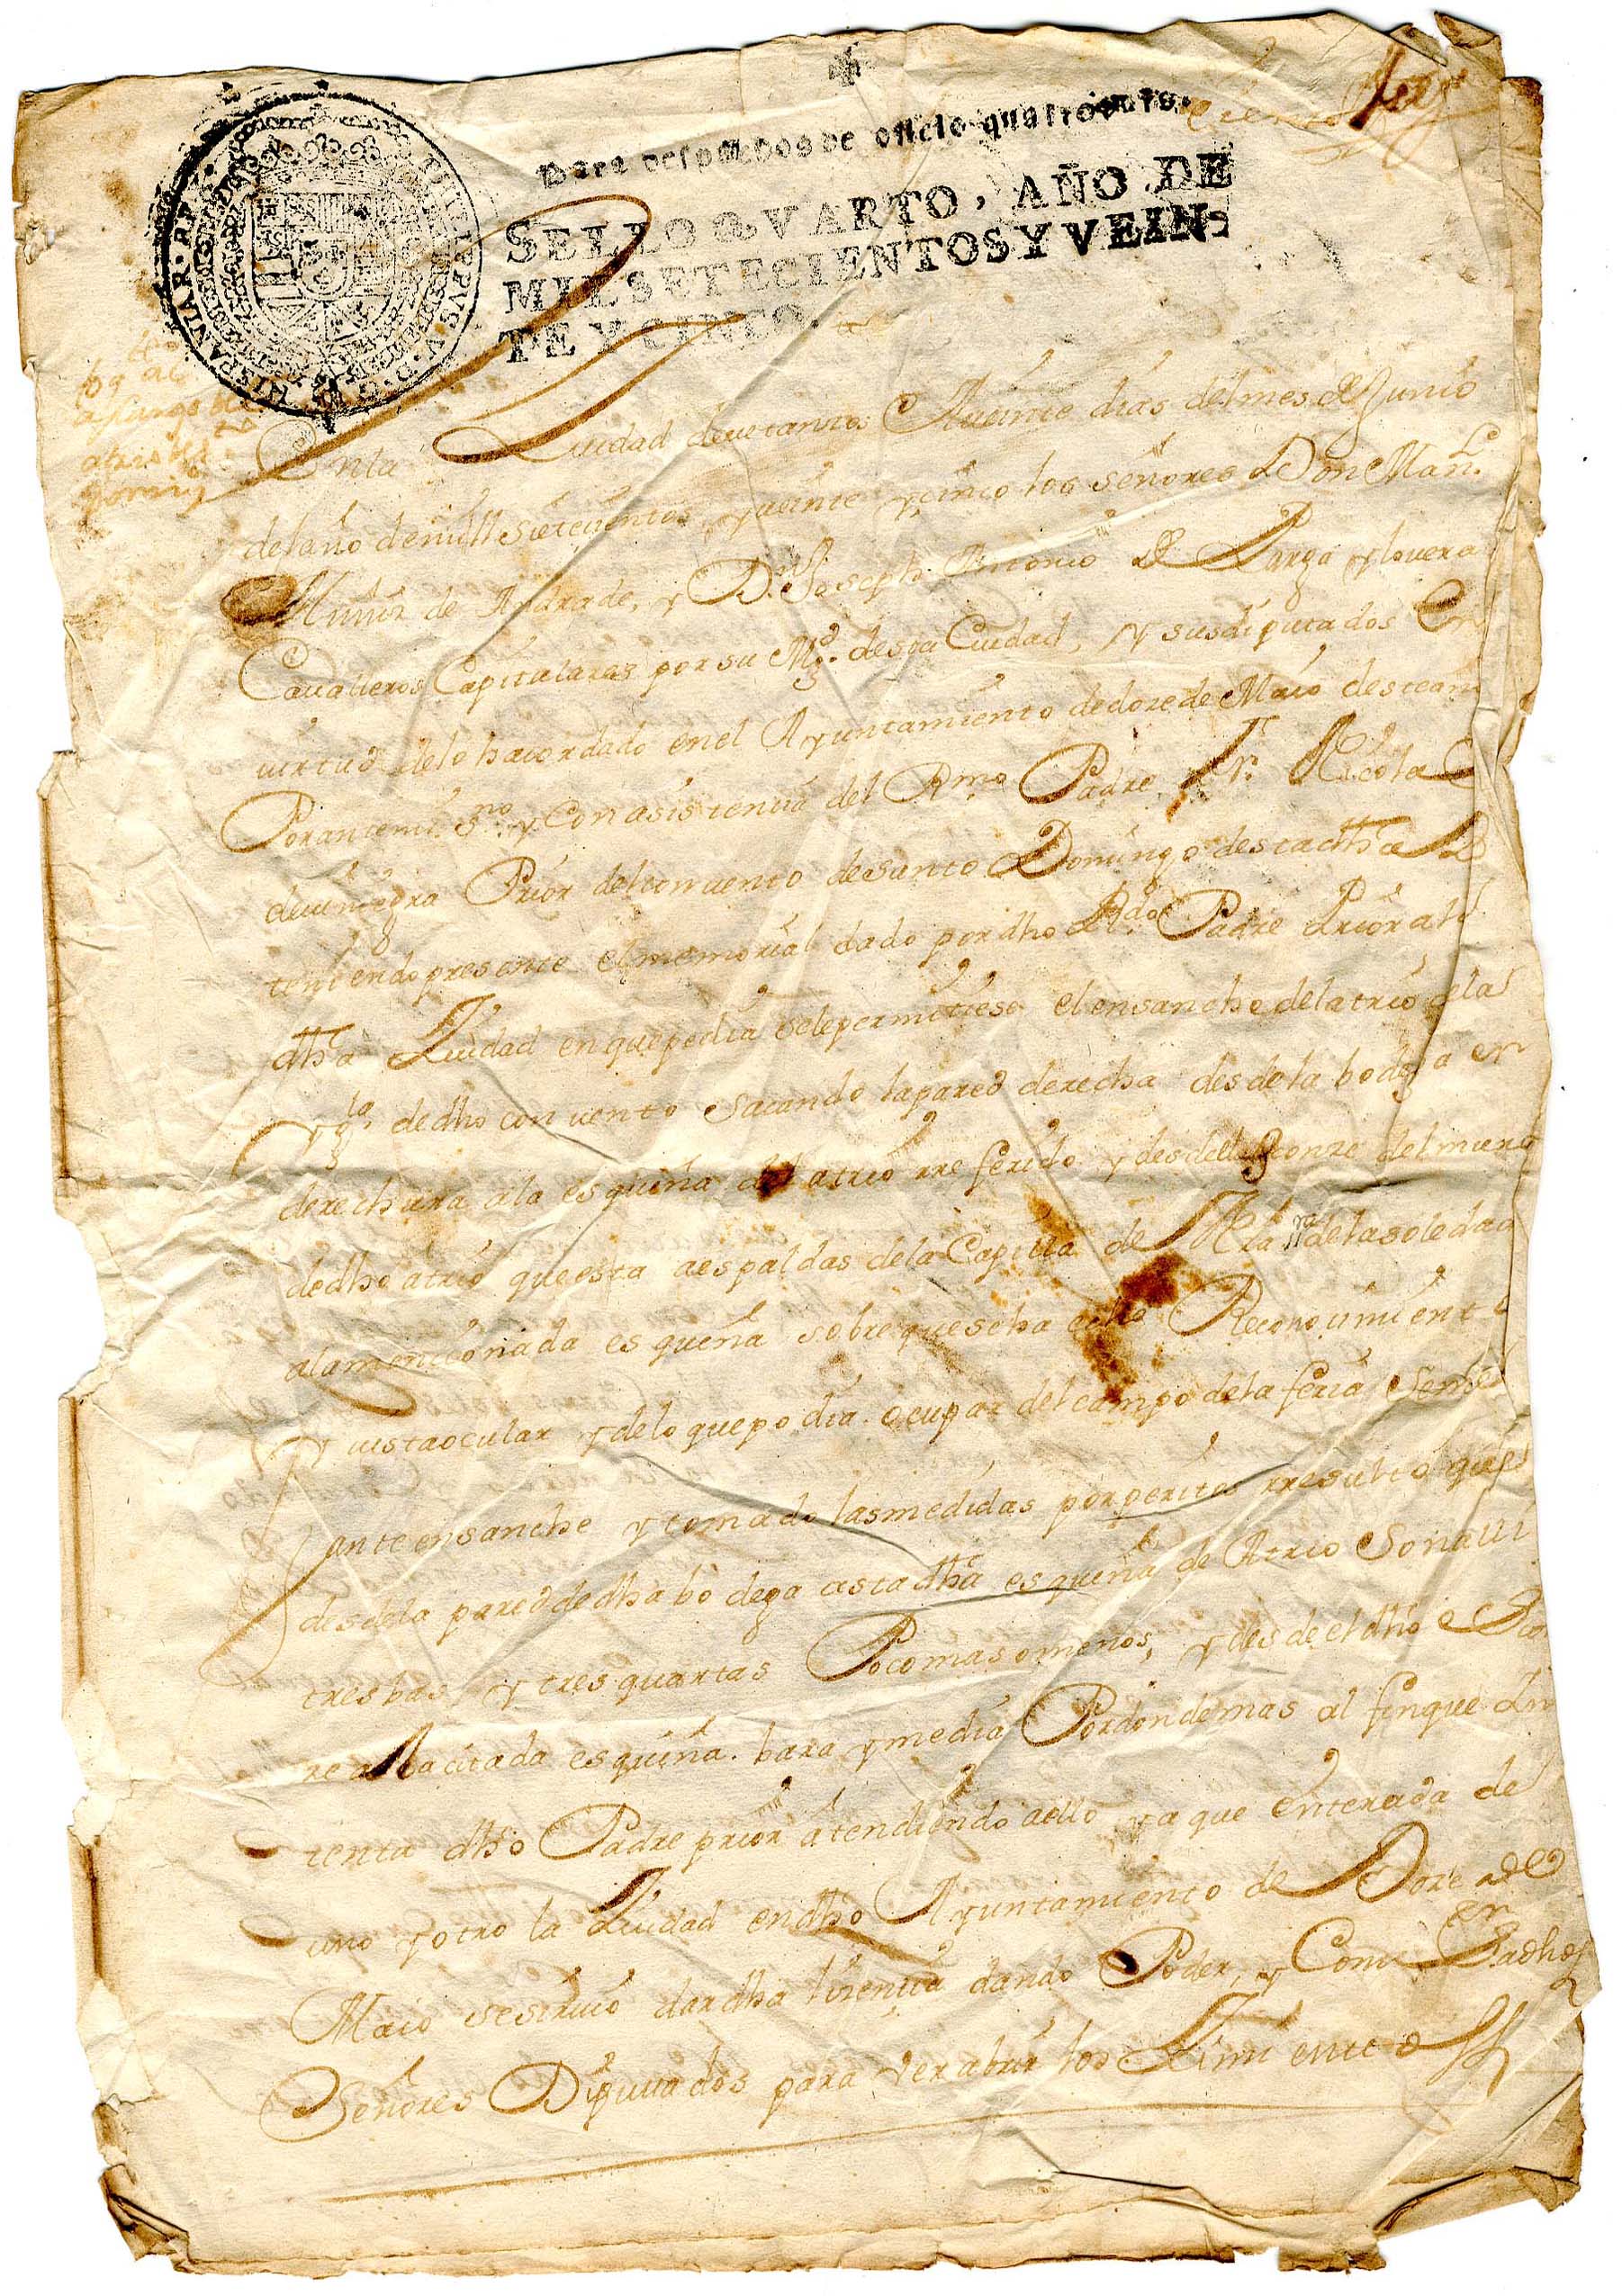 Para despachos de oficio quatro mrs.
SELLO QVARTO, AÑO DE
MIL SETECIENTOS Y VEIN-
TE Y CINCO.
PHILIPPUS V D G
HISPANIAR REX
En la Ciudad de vetanzos A veinte dias del mes de Junio
del año de mill Setecientos y veinte y cinco los señores Don Man.l
Muñiz de Andrade, y D.n Joseph Antonio de Parga y lovera
Cavalleros Capitulares por su Mg.d desta Ciudad, y sus diputados En
virtud de lo hacordado en el Ayuntamiento de doze de Maio deste an
Por ante mi s.no y con asistencia del Rmo Padre Fr. Nicolas
Prior del convento de santo Domingo desta dha
teniendo presente el memorial dado por dho Rdo. Padre Prior a
dha Ciudad en que pedia se le permitiese el ensanche del atrio de la
Ygla. de dho convento sacando la pared derecha desde la bodega en
derechura a la esquina del atrio rreferido y desde el esconze del muro
de dho atrio que esta a espaldas de la Capilla de Nra sra de la soledad
a la mencionada esquina sobre que se ha echo Reconocimient
y vista ocular y de lo que podia ocupar del campo de la feria Seme
Jante ensanche y tomado las medidas por peritos rresulto que
desde la pared de dha bodega asta dha esquina de Atrio Son
tres bas. y tres quartas Poco mas o menos, y desde el dho Escon
ze a la citada esquina bara y media Por donde mas al fin que In
tenta dho Padre prior atendiendo a ello y a que enterada de
uno y otro la Ciudad en dho Ayuntamiento de Doze de
Maio se sirvio dar dha lizencia dando Poder, y Comi
en
Señores Diputados para ver abrir los Zimientos